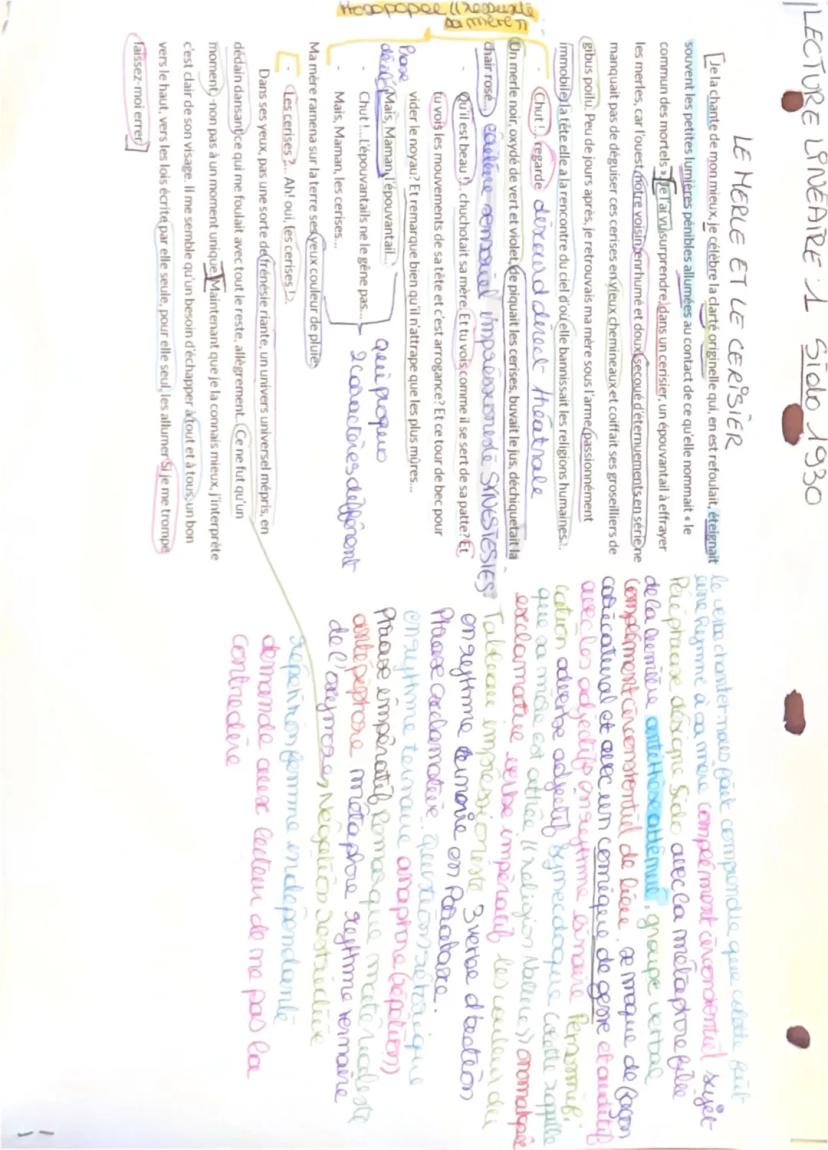 LECTURE LINEAIRE 1 Sido 1930
LE MERLE ET LE CERISIER
[Je la chante de mon mieux, je célèbre la clarté originelle qui, en est refoulait, éteignait
souvent les petites lumières pénibles allumées au contact de ce qu'elle nommait « le
commun des mortels ». Je l'ai vu surprendre, dans un cerisier, un épouvantail à effrayer
les merles, car l'ouest, notre voisin, enrhumé et doux, secoué d'éternuements en série, ne
manquait pas de déguiser ces cerisiers en vieux chemineaux et coiffait ses groseilliers de
gibus poilu. Peu de jours après, je retrouvais ma mère sous l'arme, passionnément
immobile, la tête elle a la rencontre du ciel d'où elle bannissait les religions humaines..
- Chut !.. regarde discourd direct théatrale
Un merle noir, oxydé de vert et violet, de piquait les cerises, buvait le jus, déchiquetait la
chair rosé... caultère sensoriel impréssionesté SINESTESIES
- Qu'il est beau !.. chuchotait sa mère. Et tu vois comme il se sert de sa patte? Et
tu vois les mouvements de sa tête et c'est arrogance? Et ce tour de bec pour
vider le noyau? Et remarque bien qu'il n'attrape que les plus mûres...
- Mais, Maman, l'épouvantail...
- Chut !... L'épouvantails ne le gêne pas...
- Mais, Maman, les cerises...
quiproquo
2 caractères différent
Ma mère ramena sur la terre ses yeux couleur de pluie
- Les cerises ?... Ah! oui, les cerises !..
Dans ses yeux, pas une sorte de frénésie riante, un univers universel mépris, en
dédain dansant ce qui me foulait avec tout le reste, allègrement. Ce ne fut qu'un
moment,-non pas à un moment unique. Maintenant que je la connais mieux, j'interprète
c'est clair de son visage. Il me semble qu'un besoin d'échapper à tout et à tous, un bon
vers le haut, vers les lois écrite par elle seule, pour elle seul, les allumer Si je me trompe
laissez-moi errer]
Prosopopée "ressuscite
sa mère"
le verbe chanter nous fait comprendre que colette fait
une hymne à sa mère complément circonstentiel sujet
Periphrase désigne Sido avec la métaphore filée
de la lumière antithèse atténué, groupe verbal
complément circonstentiel de lieu, se moque de façon
caricatural et avec un comique de geste et auditif
avec les adjectifs en rythme binaire Personnifi-
cation adverbe adjectif synecdoque colette rappelle
que sa mère est athée (religion Nature) onomatopé
exclamative verbe impératif les couleur du
Tableau impressioniste 3 verbe d'action
en rythme binaire en Parataxe.
Phrase exclamative, question rétorique
en rythme ternaire anaphore (répétition)
Phrase impératif Remarque matérialiste
antépiphore métaphore rythme ternaire
de l'oxymore, Négation restrictive
répétition femme indépendante
demande aux lecteur de ne pas la
contredire